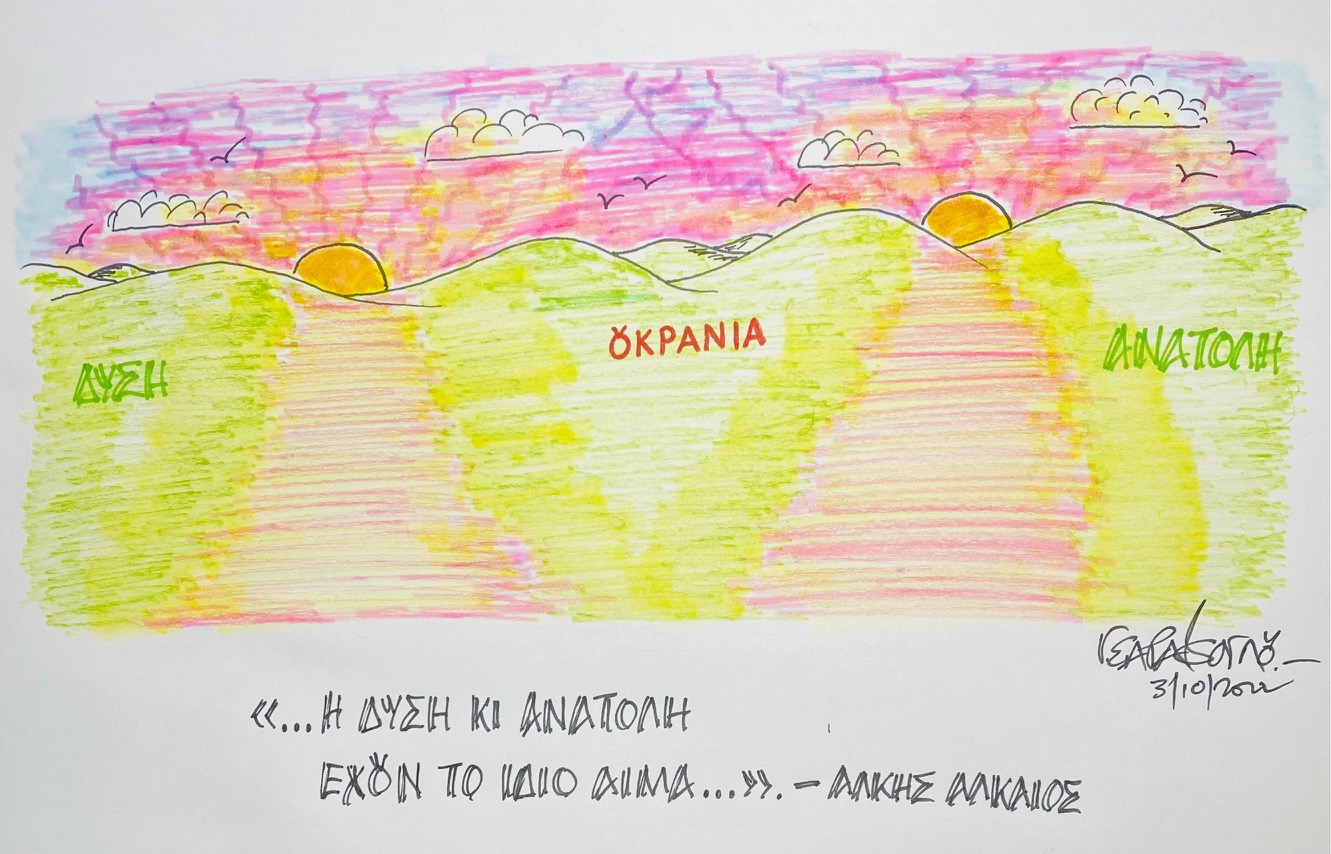 ΔΥΣΗ
ȢΚΡΑΝΙΑ
ΑΝΑΤΟΛΗ
3/10/2022
«...Η ΔΥΣΗ ΚΙ ΑΝΑΤΟΛΗ
ΕΧȢΝ ΤΟ ΙΔΙΟ ΑΙΜΑ...». - ΑΛΚΗΣ ΑΛΚΑΙΟΣ